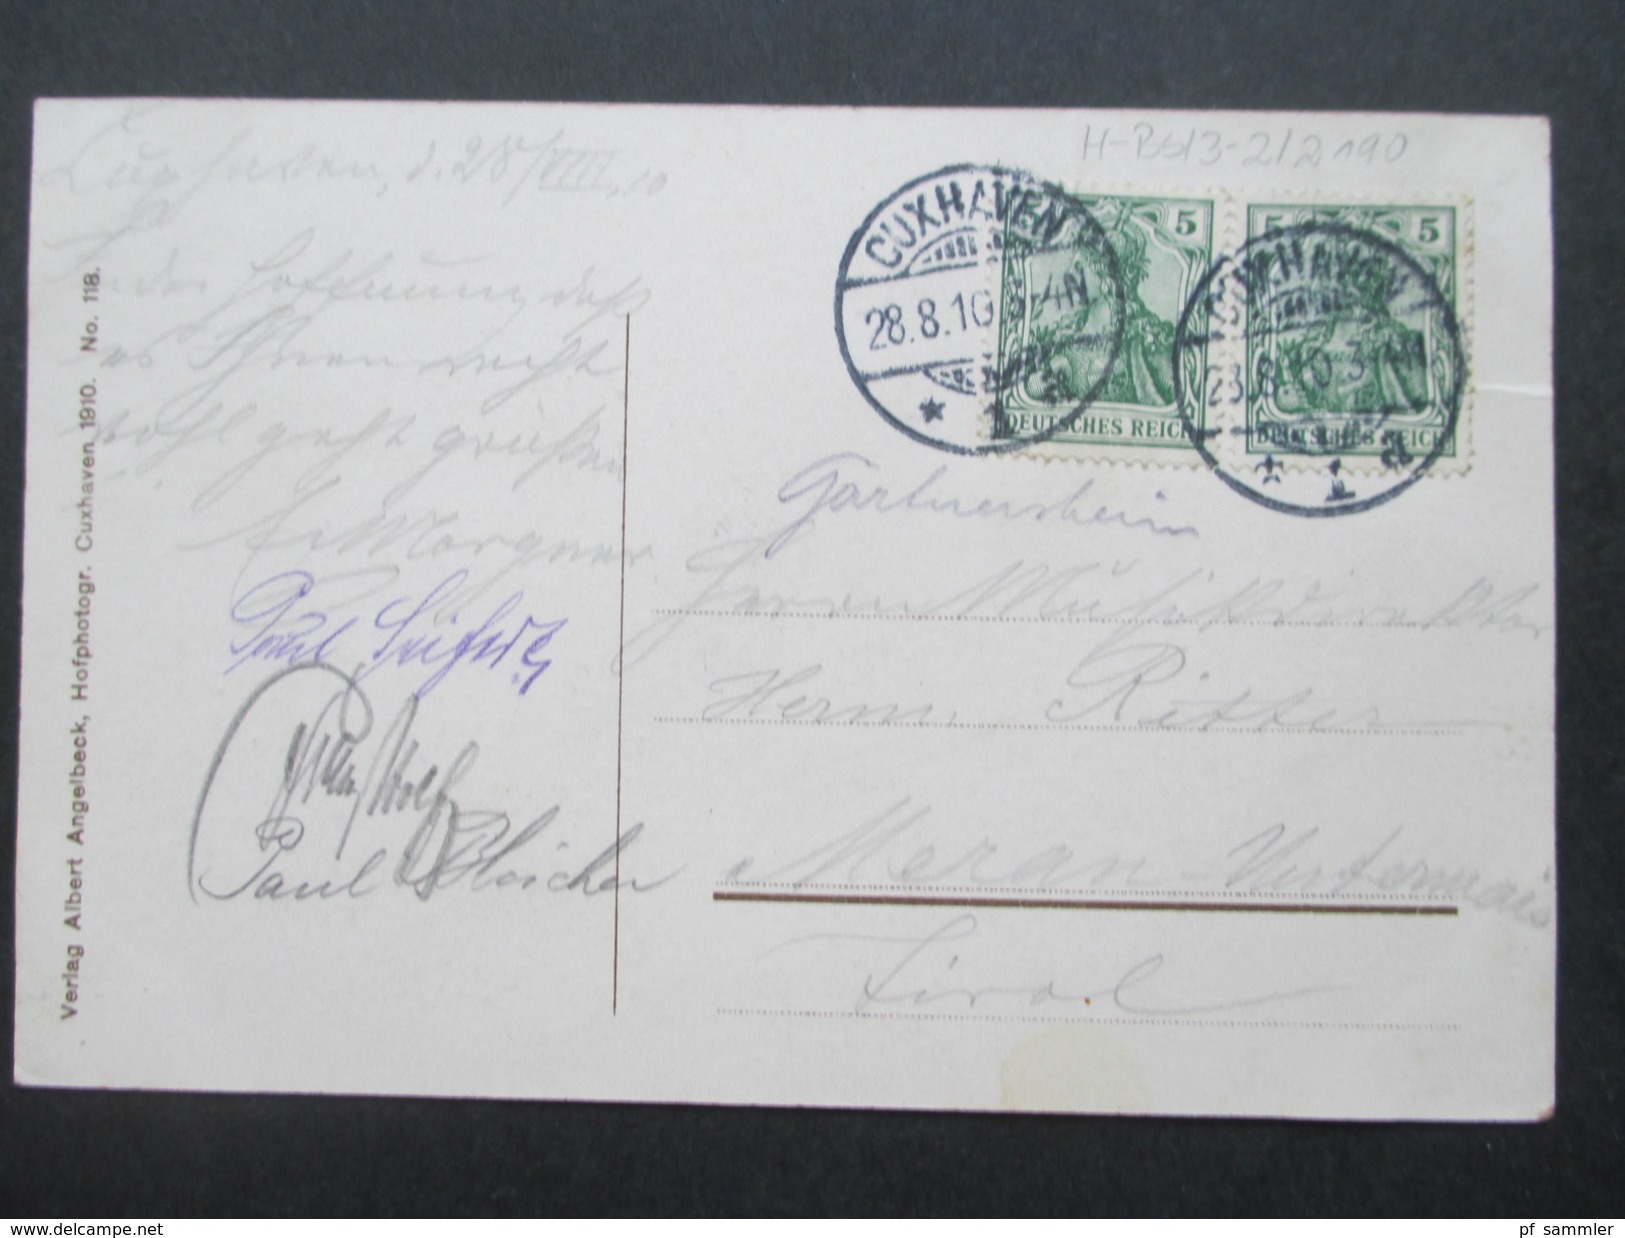 Cuxhaven, d. 28/VIII. 10
In der Hoffnung, daß
es Ihnen recht
wohl geht grüßen
Morgner
Paul
Paul
Verlag Albert Angelbeck, Hofphotogr. Cuxhaven 1910. No. 118.
2/2190
CUXHAVEN
28.8.10 3-4N
* 1 a
5
DEUTSCHES REICH
5
DEUTSCHES REICH
CUXHAVEN
28.8.10 3-4N
* 1 a
Gärtnersheim
Herrn Musikdirektor
Herm. Ritter
Meran-Untermais
Tirol
www.delcampe.net
pf_sammler